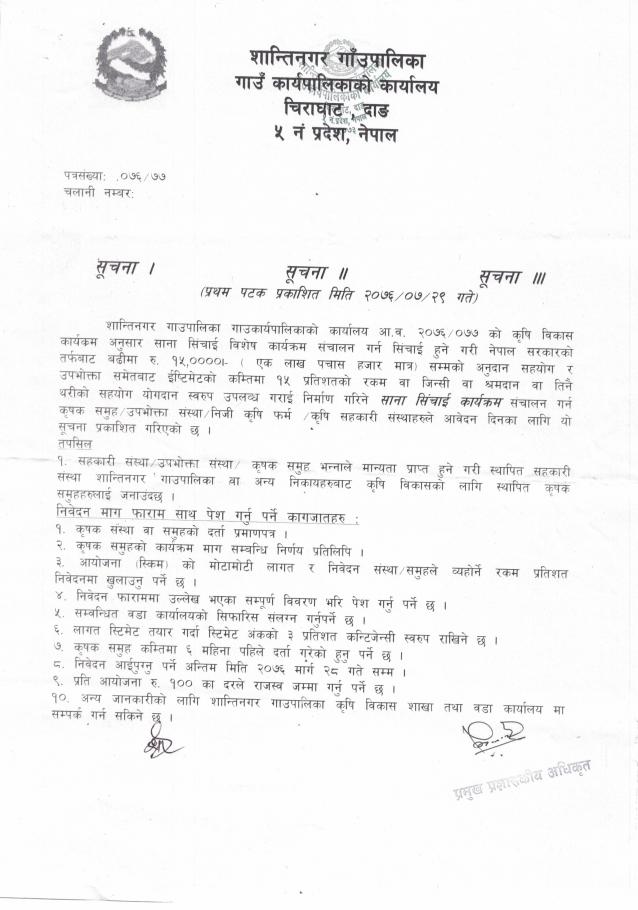 शान्तिनगर गाँउपालिका
गाउँ कार्यपालिकाको कार्यालय
चिराघाट , दाङ
५ नं प्रदेश, नेपाल
पत्रसंख्या: .०७६/७७
चलानी नम्बर:
सूचना । सूचना ॥ सूचना ॥।
(प्रथम पटक प्रकाशित मिति २०७६/०७/२९ गते)
शान्तिनगर गाउपालिका गाउकार्यपालिकाको कार्यालय आ.व. २०७६/०७७ को कृषि विकास
कार्यकम अनुसार साना सिंचाई विशेष कार्यक्रम संचालन गर्न सिंचाई हुने गरी नेपाल सरकारको
तर्फवाट बढीमा रु. १५,००००।- ( एक लाख पचास हजार मात्र) सम्मको अनुदान सहयोग र
उपभोक्ता समेतबाट ईष्टिमेटको कम्तिमा १५ प्रतिशतको रकम वा जिन्सी वा श्रमदान वा तिनै
थरीको सहयोग योगदान स्वरुप उपलव्ध गराई निर्माण गरिने साना सिंचाई कार्यक्रम संचालन गर्न
कृषक समुह/उपभोक्ता संस्था/निजी कृषि फर्म /कृषि सहकारी संस्थाहरुले आवेदन दिनका लागि यो
सूचना प्रकाशित गरिएको छ ।
तपसिल
१. सहकारी संस्था/उपभोक्ता संस्था/ कृषक समुह भन्नाले मान्यता प्राप्त हुने गरी स्थापित सहकारी
संस्था शान्तिनगर गाउपालिका वा अन्य निकायहरुबाट कृषि विकासको लागि स्थापित कृषक
समुहहरुलाई जनाउदछ ।
निवेदन माग फाराम साथ पेश गर्नु पर्ने कागजातहरु :
१. कृषक संस्था वा समुहको दर्ता प्रमाणपत्र ।
२. कृषक समुहको कार्यक्रम माग सम्वन्धि निर्णय प्रतिलिपि ।
३. आयोजना (स्किम) को मोटामोटी लागत र निवेदन संस्था/समुहले व्यहोर्ने रकम प्रतिशत
निवेदनमा खुलाउनु पर्ने छ ।
४. निवेदन फाराममा उल्लेख भएका सम्पूर्ण विवरण भरि पेश गर्नु पर्ने छ ।
५. सम्वन्धित वडा कार्यालयको सिफारिस संलग्न गर्नुपर्ने छ ।
६. लागत स्टिमेट तयार गर्दा स्टिमेट अंकको ३ प्रतिशत कन्टिजेन्सी स्वरुप राखिने छ ।
७. कृषक समुह कम्तिमा ६ महिना पहिले दर्ता गरेको हुनु पर्ने छ ।
८. निवेदन आईपुग्नु पर्ने अन्तिम मिति २०७६ मार्ग २८ गते सम्म ।
९. प्रति आयोजना रु. १०० का दरले राजस्व जम्मा गर्नु पर्ने छ ।
१०. अन्य जानकारीको लागि शान्तिनगर गाउपालिका कृषि विकास शाखा तथा वडा कार्यालय मा
सम्पर्क गर्न सकिने छ ।
प्रमुख प्रशासकीय अधिकृत